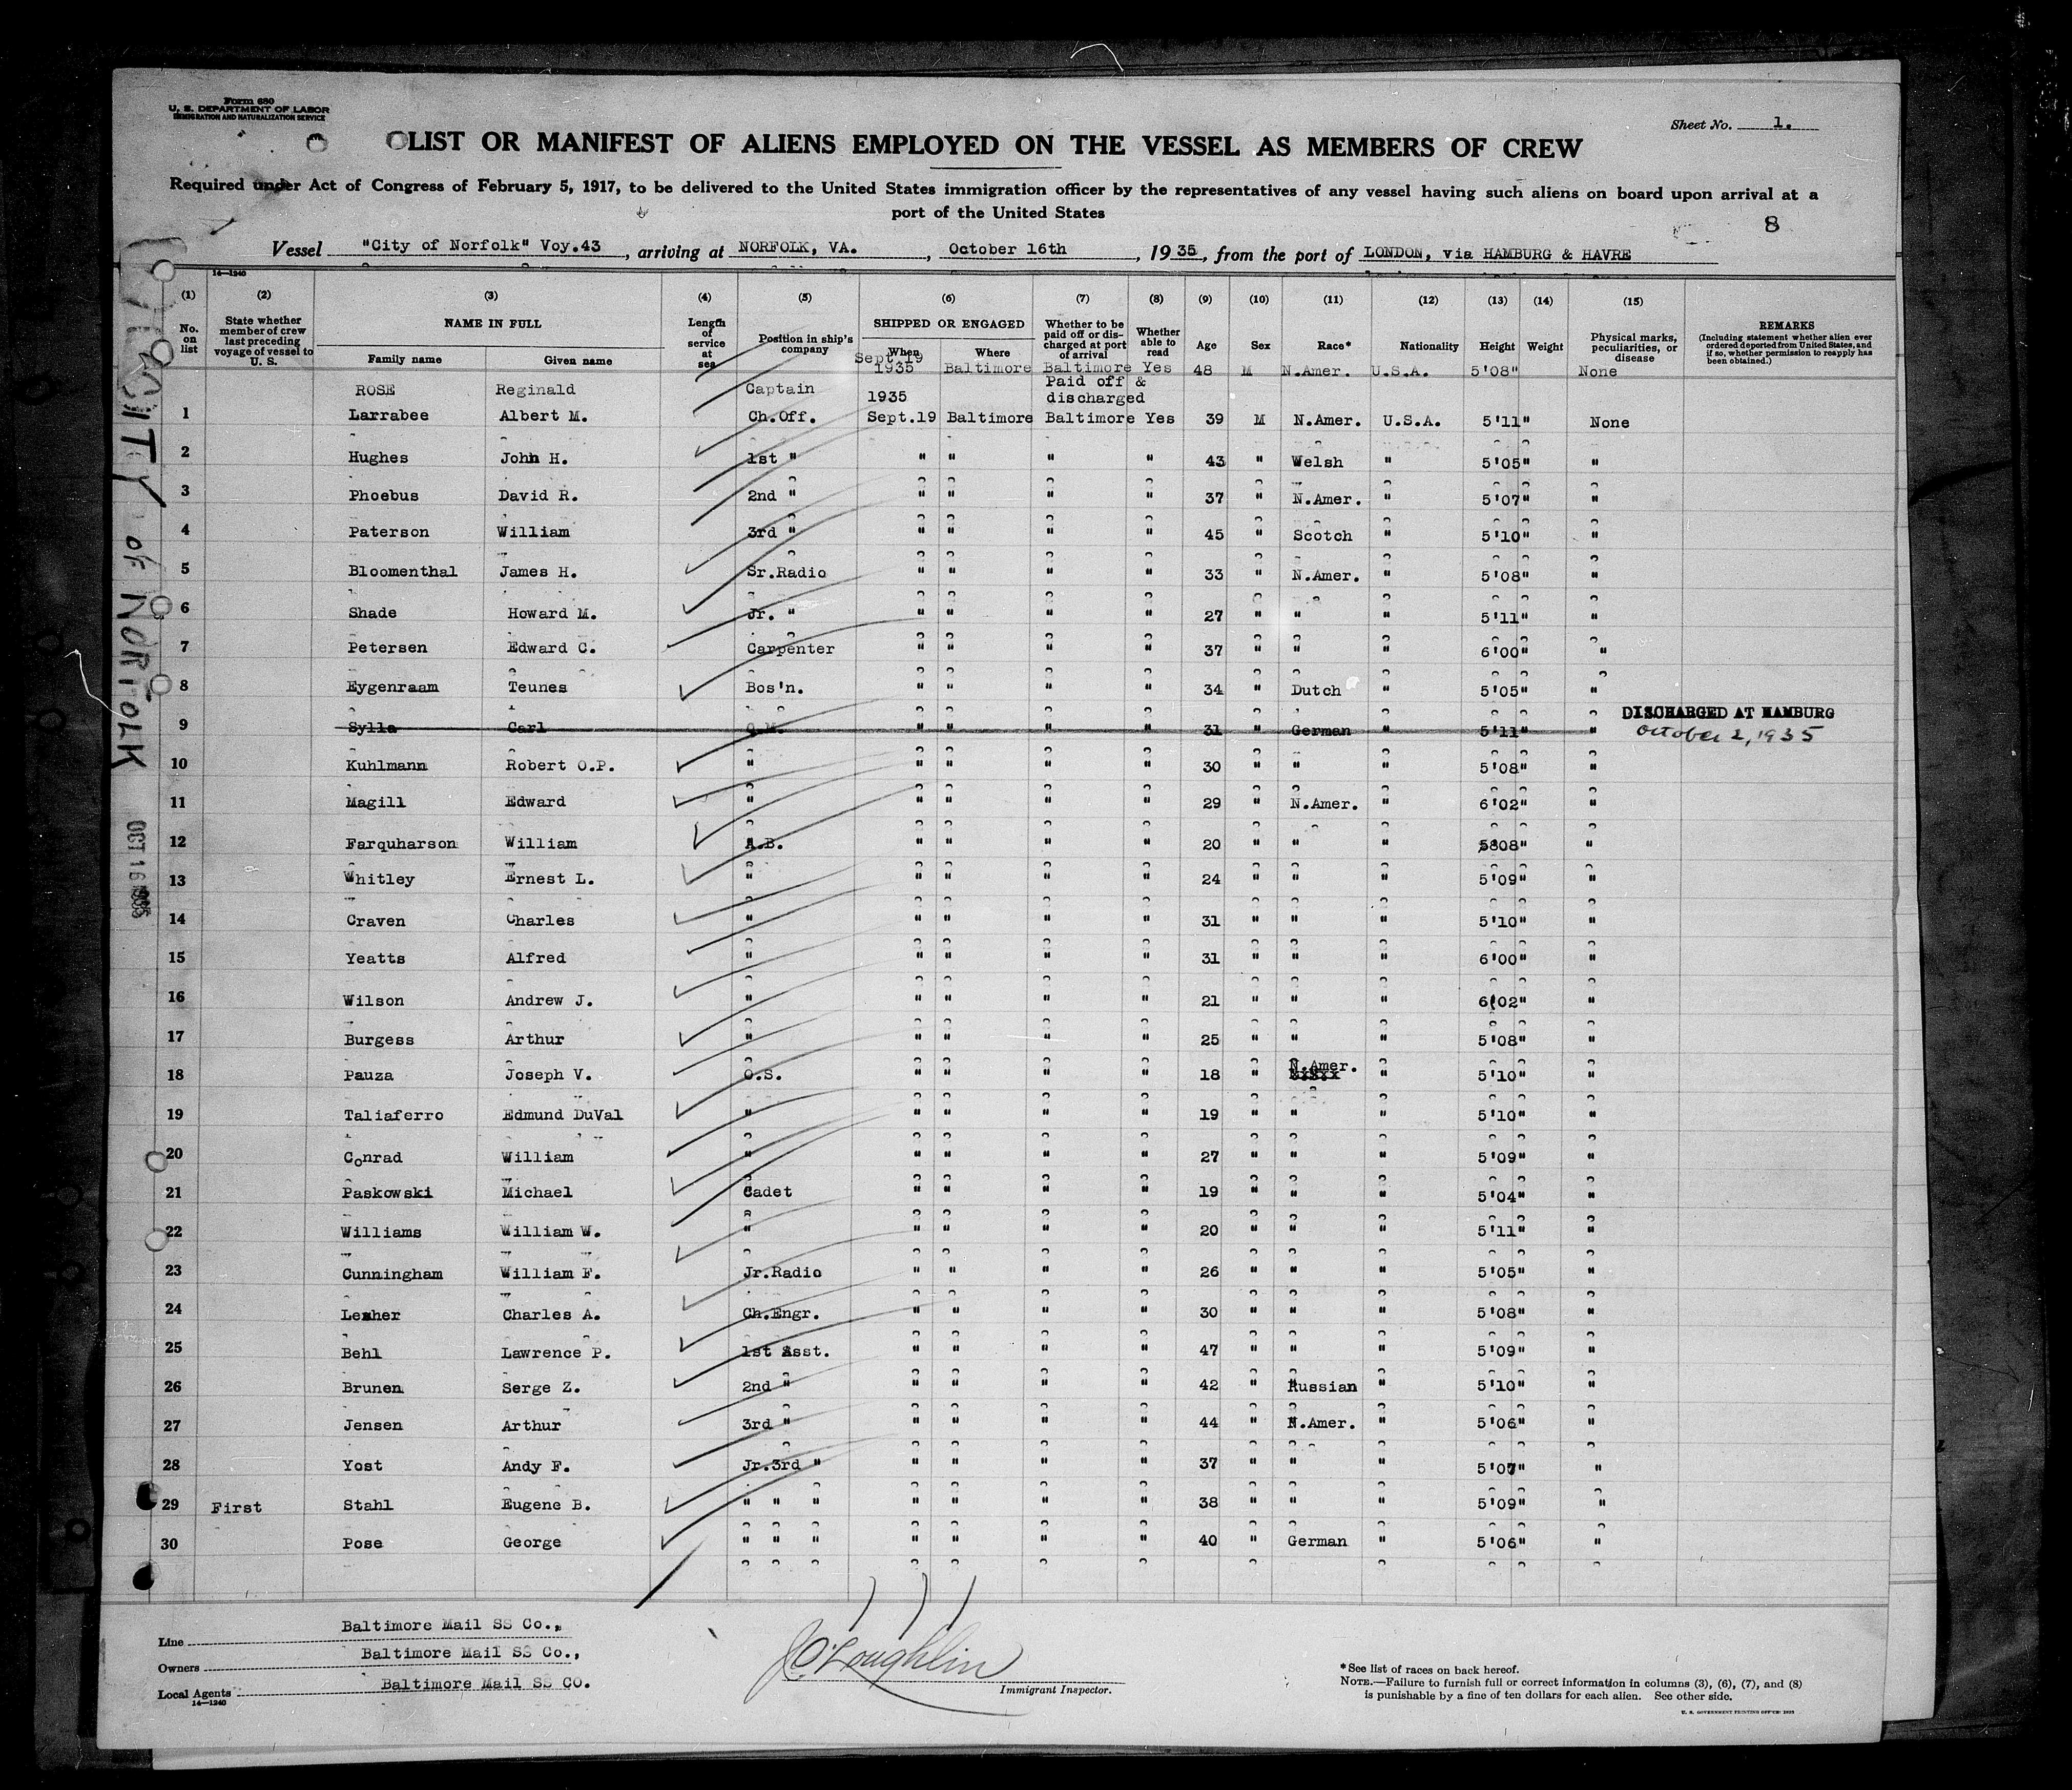 Form 680
U. S. DEPARTMENT OF LABOR
IMMIGRATION AND NATURALIZATION SERVICE
Sheet No. 1.
LIST OR MANIFEST OF ALIENS EMPLOYED ON THE VESSEL AS MEMBERS OF CREW
Required under Act of Congress of February 5, 1917, to be delivered to the United States immigration officer by the representatives of any vessel having such aliens on board upon arrival at a
port of the United States
8
Vessel "City of Norfolk" Voy.43, arriving at NORFOLK, VA., October 16th, 1935, from the port of LONDON, via HAMBURG & HAVRE
14—1240
(1) (2) (3) (4) (5) (6) (7) (8) (9) (10) (11) (12) (13) (14) (15)
No. on list
State whether member of crew last preceding voyage of vessel to U. S.
NAME IN FULL
Family name Given name
Length of service at sea
Position in ship's company
SHIPPED OR ENGAGED
When Where
Whether to be paid off or discharged at port of arrival
Whether able to read
Age Sex Race* Nationality Height Weight
Physical marks, peculiarities, or disease
REMARKS
(Including statement whether alien ever ordered deported from United States, and if so, whether permission to reapply has been obtained.)
ROSE Reginald Captain Sept.19 1935 Baltimore Baltimore Yes 48 M N.Amer. U.S.A. 5'08" None
Paid off & discharged
1935
1 Larrabee Albert M. Ch.Off. Sept.19 Baltimore Baltimore Yes 39 M N.Amer. U.S.A. 5'11" None
2 Hughes John H. 1st " " " " " 43 " Welsh " 5'05" "
3 Phoebus David R. 2nd " " " " " 37 " N.Amer. " 5'07" "
4 Paterson William 3rd " " " " " 45 " Scotch " 5'10" "
5 Bloomenthal James H. Sr.Radio " " " " 33 " N.Amer. " 5'08" "
6 Shade Howard M. Jr. " " " " " 27 " " " 5'11" "
7 Petersen Edward C. Carpenter " " " " 37 " " " 6'00" "
8 Eygenraam Teunes Bos'n. " " " " 34 " Dutch " 5'05" "
9 Sylla Carl Q.M. " " " " 31 " German " 5'11" " DISCHARGED AT HAMBURG
October 2, 1935
10 Kuhlmann Robert O.P. " " " " " 30 " " " 5'08" "
11 Magill Edward " " " " " 29 " N.Amer. " 6'02" "
12 Farquharson William A.B. " " " " 20 " " " 5808" "
13 Whitley Ernest L. " " " " " 24 " " " 5'09" "
14 Craven Charles " " " " " 31 " " " 5'10" "
15 Yeatts Alfred " " " " " 31 " " " 6'00" "
16 Wilson Andrew J. " " " " " 21 " " " 6'02" "
17 Burgess Arthur " " " " " 25 " " " 5'08" "
18 Pauza Joseph V. O.S. " " " " 18 " N.Amer. " 5'10" "
19 Taliaferro Edmund DuVal " " " " " 19 " " " 5'10" "
20 Conrad William " " " " " 27 " " " 5'09" "
21 Paskowski Michael Cadet " " " " 19 " " " 5'04" "
22 Williams William W. " " " " " 20 " " " 5'11" "
23 Cunningham William F. Jr.Radio " " " " 26 " " " 5'05" "
24 Charles A. Ch.Engr. " " " " 30 " " " 5'08" "
25 Behl Lawrence P. 1st Asst. " " " " 47 " " " 5'09" "
26 Brunen Serge Z. 2nd " " " " " 42 " Russian " 5'10" "
27 Jensen Arthur 3rd " " " " " 44 " N.Amer. " 5'06" "
28 Yost Andy F. Jr.3rd " " " " " 37 " " " 5'07" "
29 First Stahl Eugene B. " " " " " " " 38 " " " 5'09" "
30 Pose George " " " " " " " 40 " German " 5'06" "
Line Baltimore Mail SS Co.,
Owners Baltimore Mail SS Co.,
Local Agents Baltimore Mail SS CO.
14—1240
J O'Loughlin
Immigrant Inspector.
*See list of races on back hereof.
NOTE.—Failure to furnish full or correct information in columns (3), (6), (7), and (8)
is punishable by a fine of ten dollars for each alien. See other side.
U. S. GOVERNMENT PRINTING OFFICE
CITY of NORFOLK
OCT 16 1935